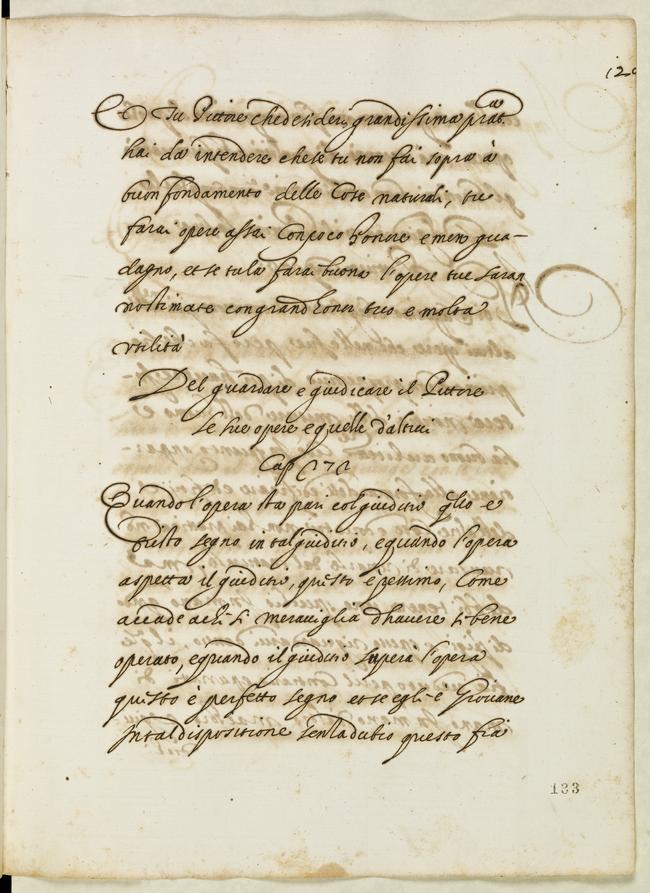 120
Et tu Pittore che desideri grandissima pratca
hai da intendere che se tu non fai sopra à
buon fondamento delle Cose naturali, tu
farai opere assai Con poco honore e men gua-
dagno, et se tu la farai buona l'opere tue saran
no stimate con grand'honor tuo e molta
utilità
Del guardare e giudicare il Pittore
le sue opere e quelle d'altrui
Cap 272
Quando l'opera sta pari col giuditio qllo e
tristo segno in tal giuditio, e quando l'opera
aspetta il giuditio, questo è pessimo, Come
accade a chi si meraviglia d'havere si bene
operato, e quando il giuditio supera l'opera
questo è perfetto segno et se egli è Giovane
In tal dispositione senza dubio questo fia
133